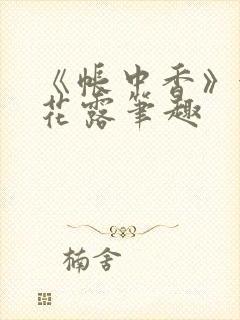 《帐中香》
花露笔趣
楠舍